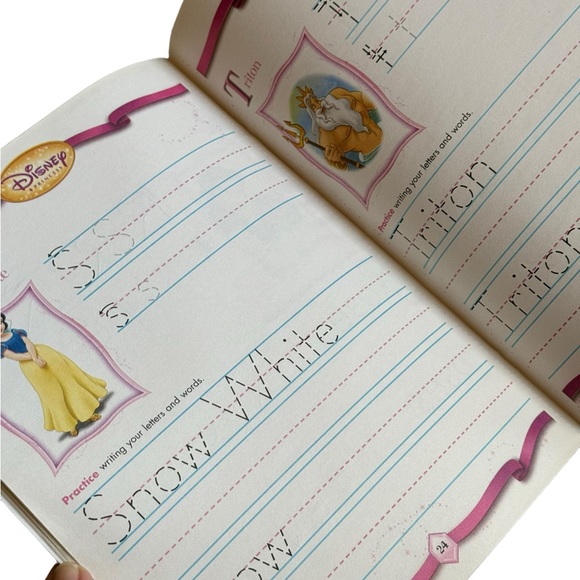 Disney
PRINCESS
S S
s s
Practice writing your letters and words.
Snow White
24
t t
Triton
Practice writing your letters and words.
Triton
Triton